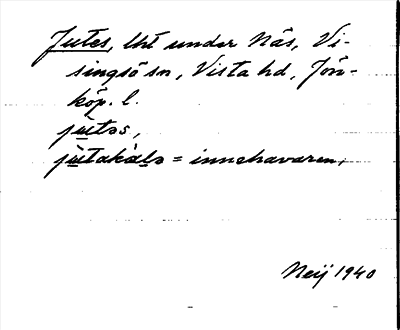 Jutes, lht under Näs, Vi-
singsö sn, Vista hd, Jön-
köp. l.
jùtəs,
jùtakàlə = innehavaren,
Neij 1940